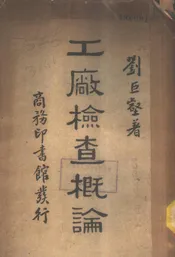 劉巨壑著
工廠檢查概論
商務印書館發行